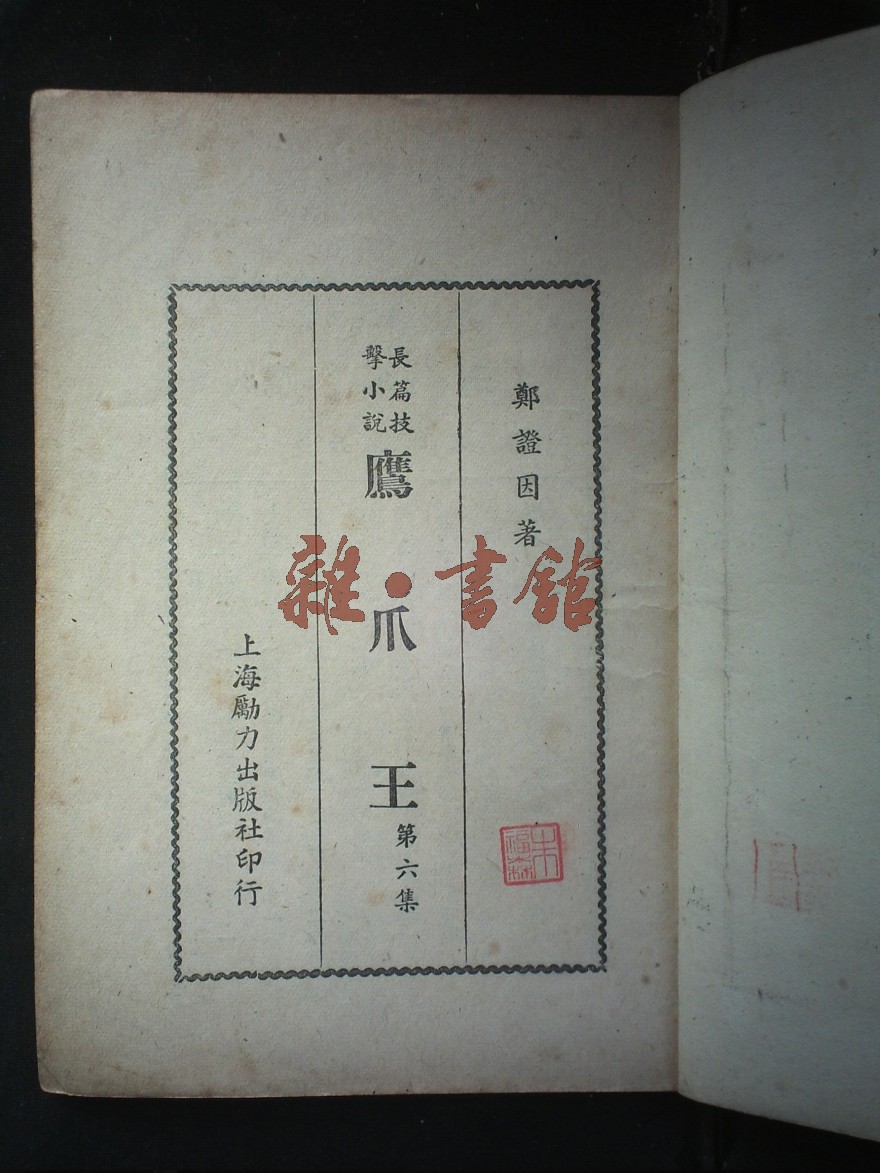 鄭證因著
長篇技擊小說
鷹爪王
第六集
上海勵力出版社印行
雜·書館
朱福森